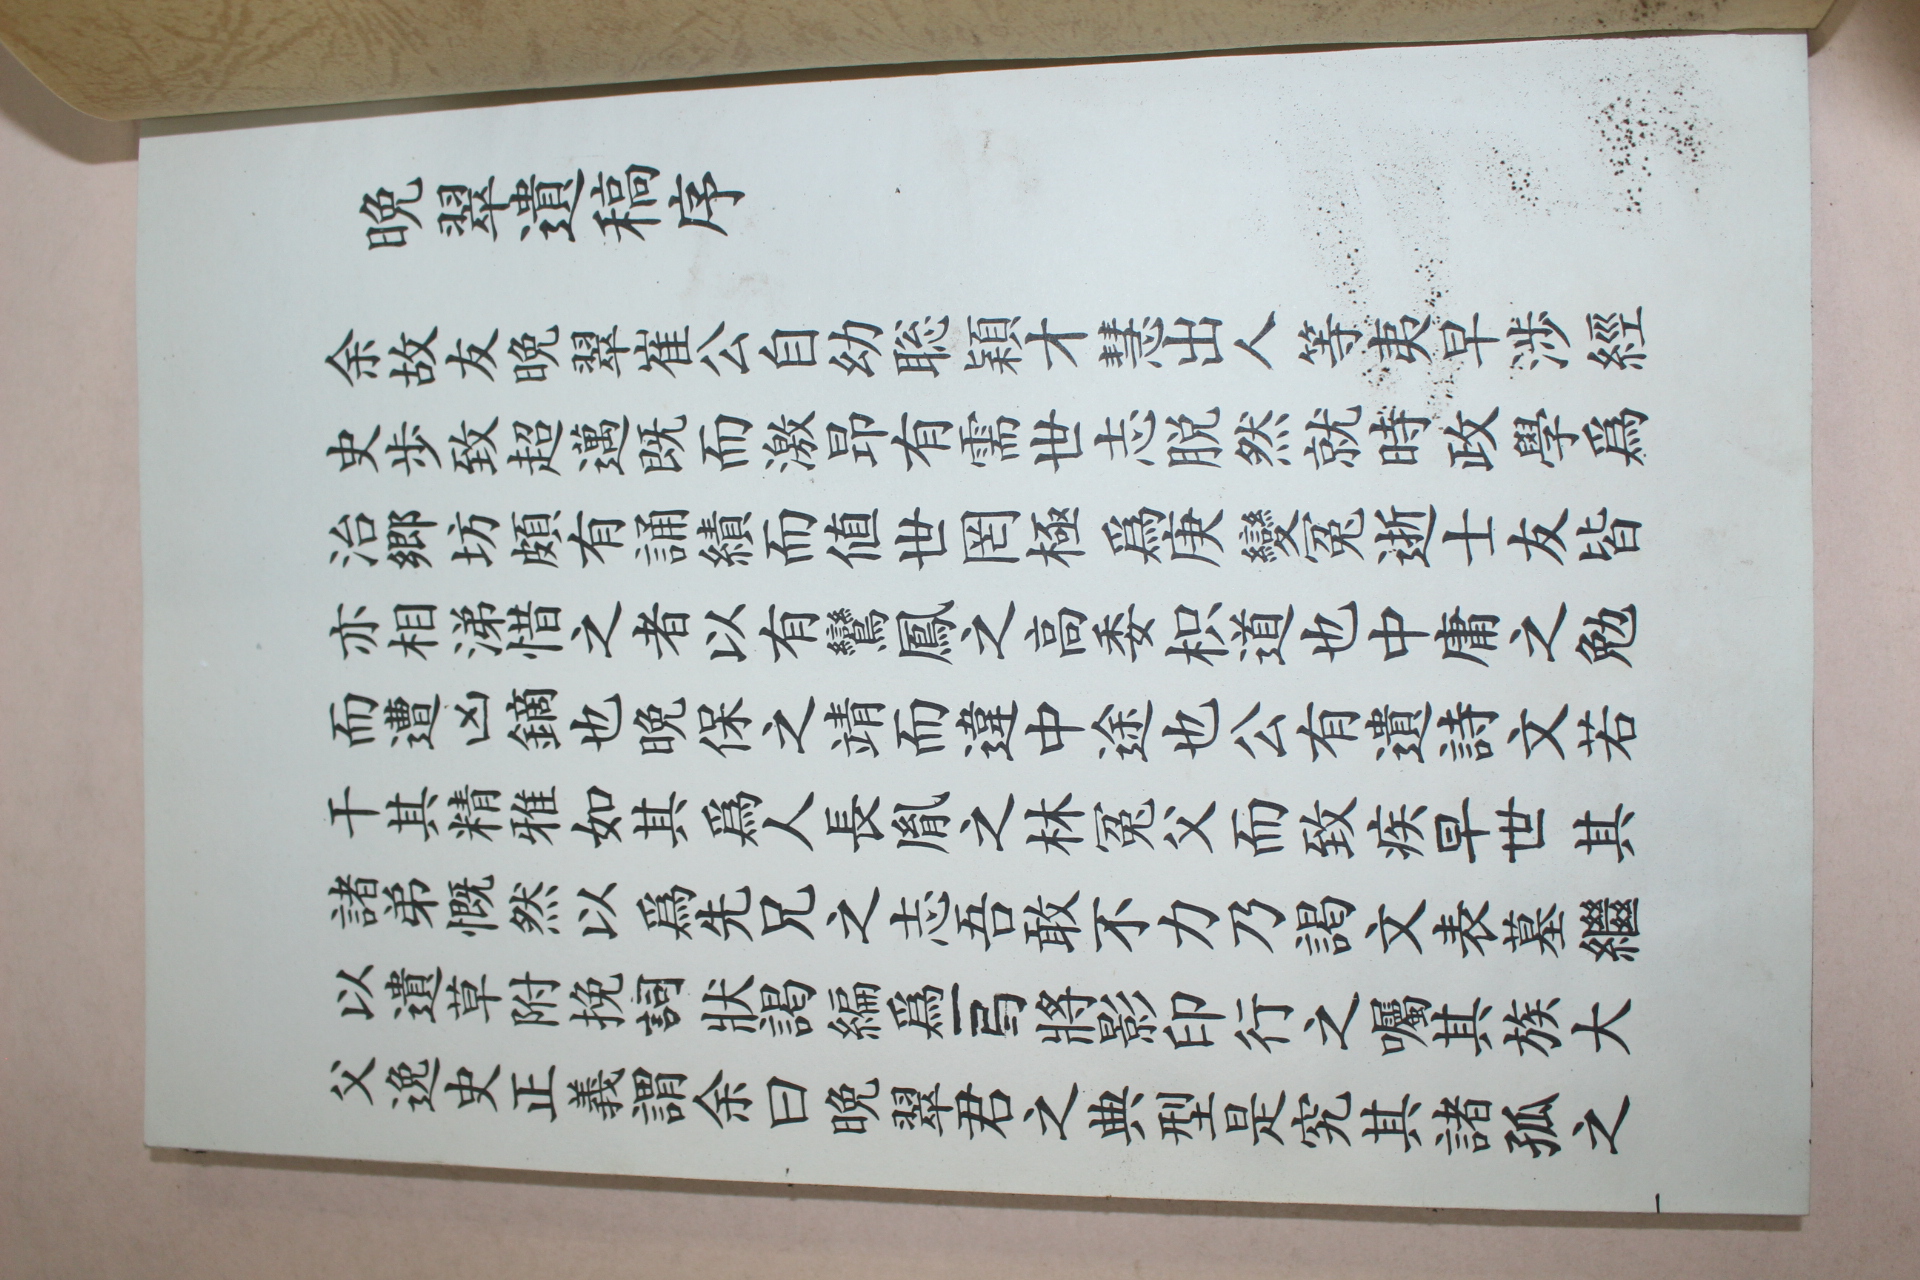 晩翠遺稿序
余故友晩翠崔公自幼聡穎才慧出人等夷早涉經
史步致超邁既而激昂有需世志脱然就時政學爲
治鄕坊頗有誦績而値世罔極爲庚變冤逝士友皆
亦相涕惜之者以有鸞鳳之高委枳道也中庸之勉
而遭凶鏑也晩保之靖而違中途也公有遺詩文若
干其精雅如其爲人長胤之林冤父而致疾早世其
諸弟慨然以爲先兄之志吾敢不力乃謁文表墓繼
以遺草附挽詞狀謁編爲一弓將影印行之囑其族大
父逸史正義謂余曰晩翠君之典型是究其諸孤之